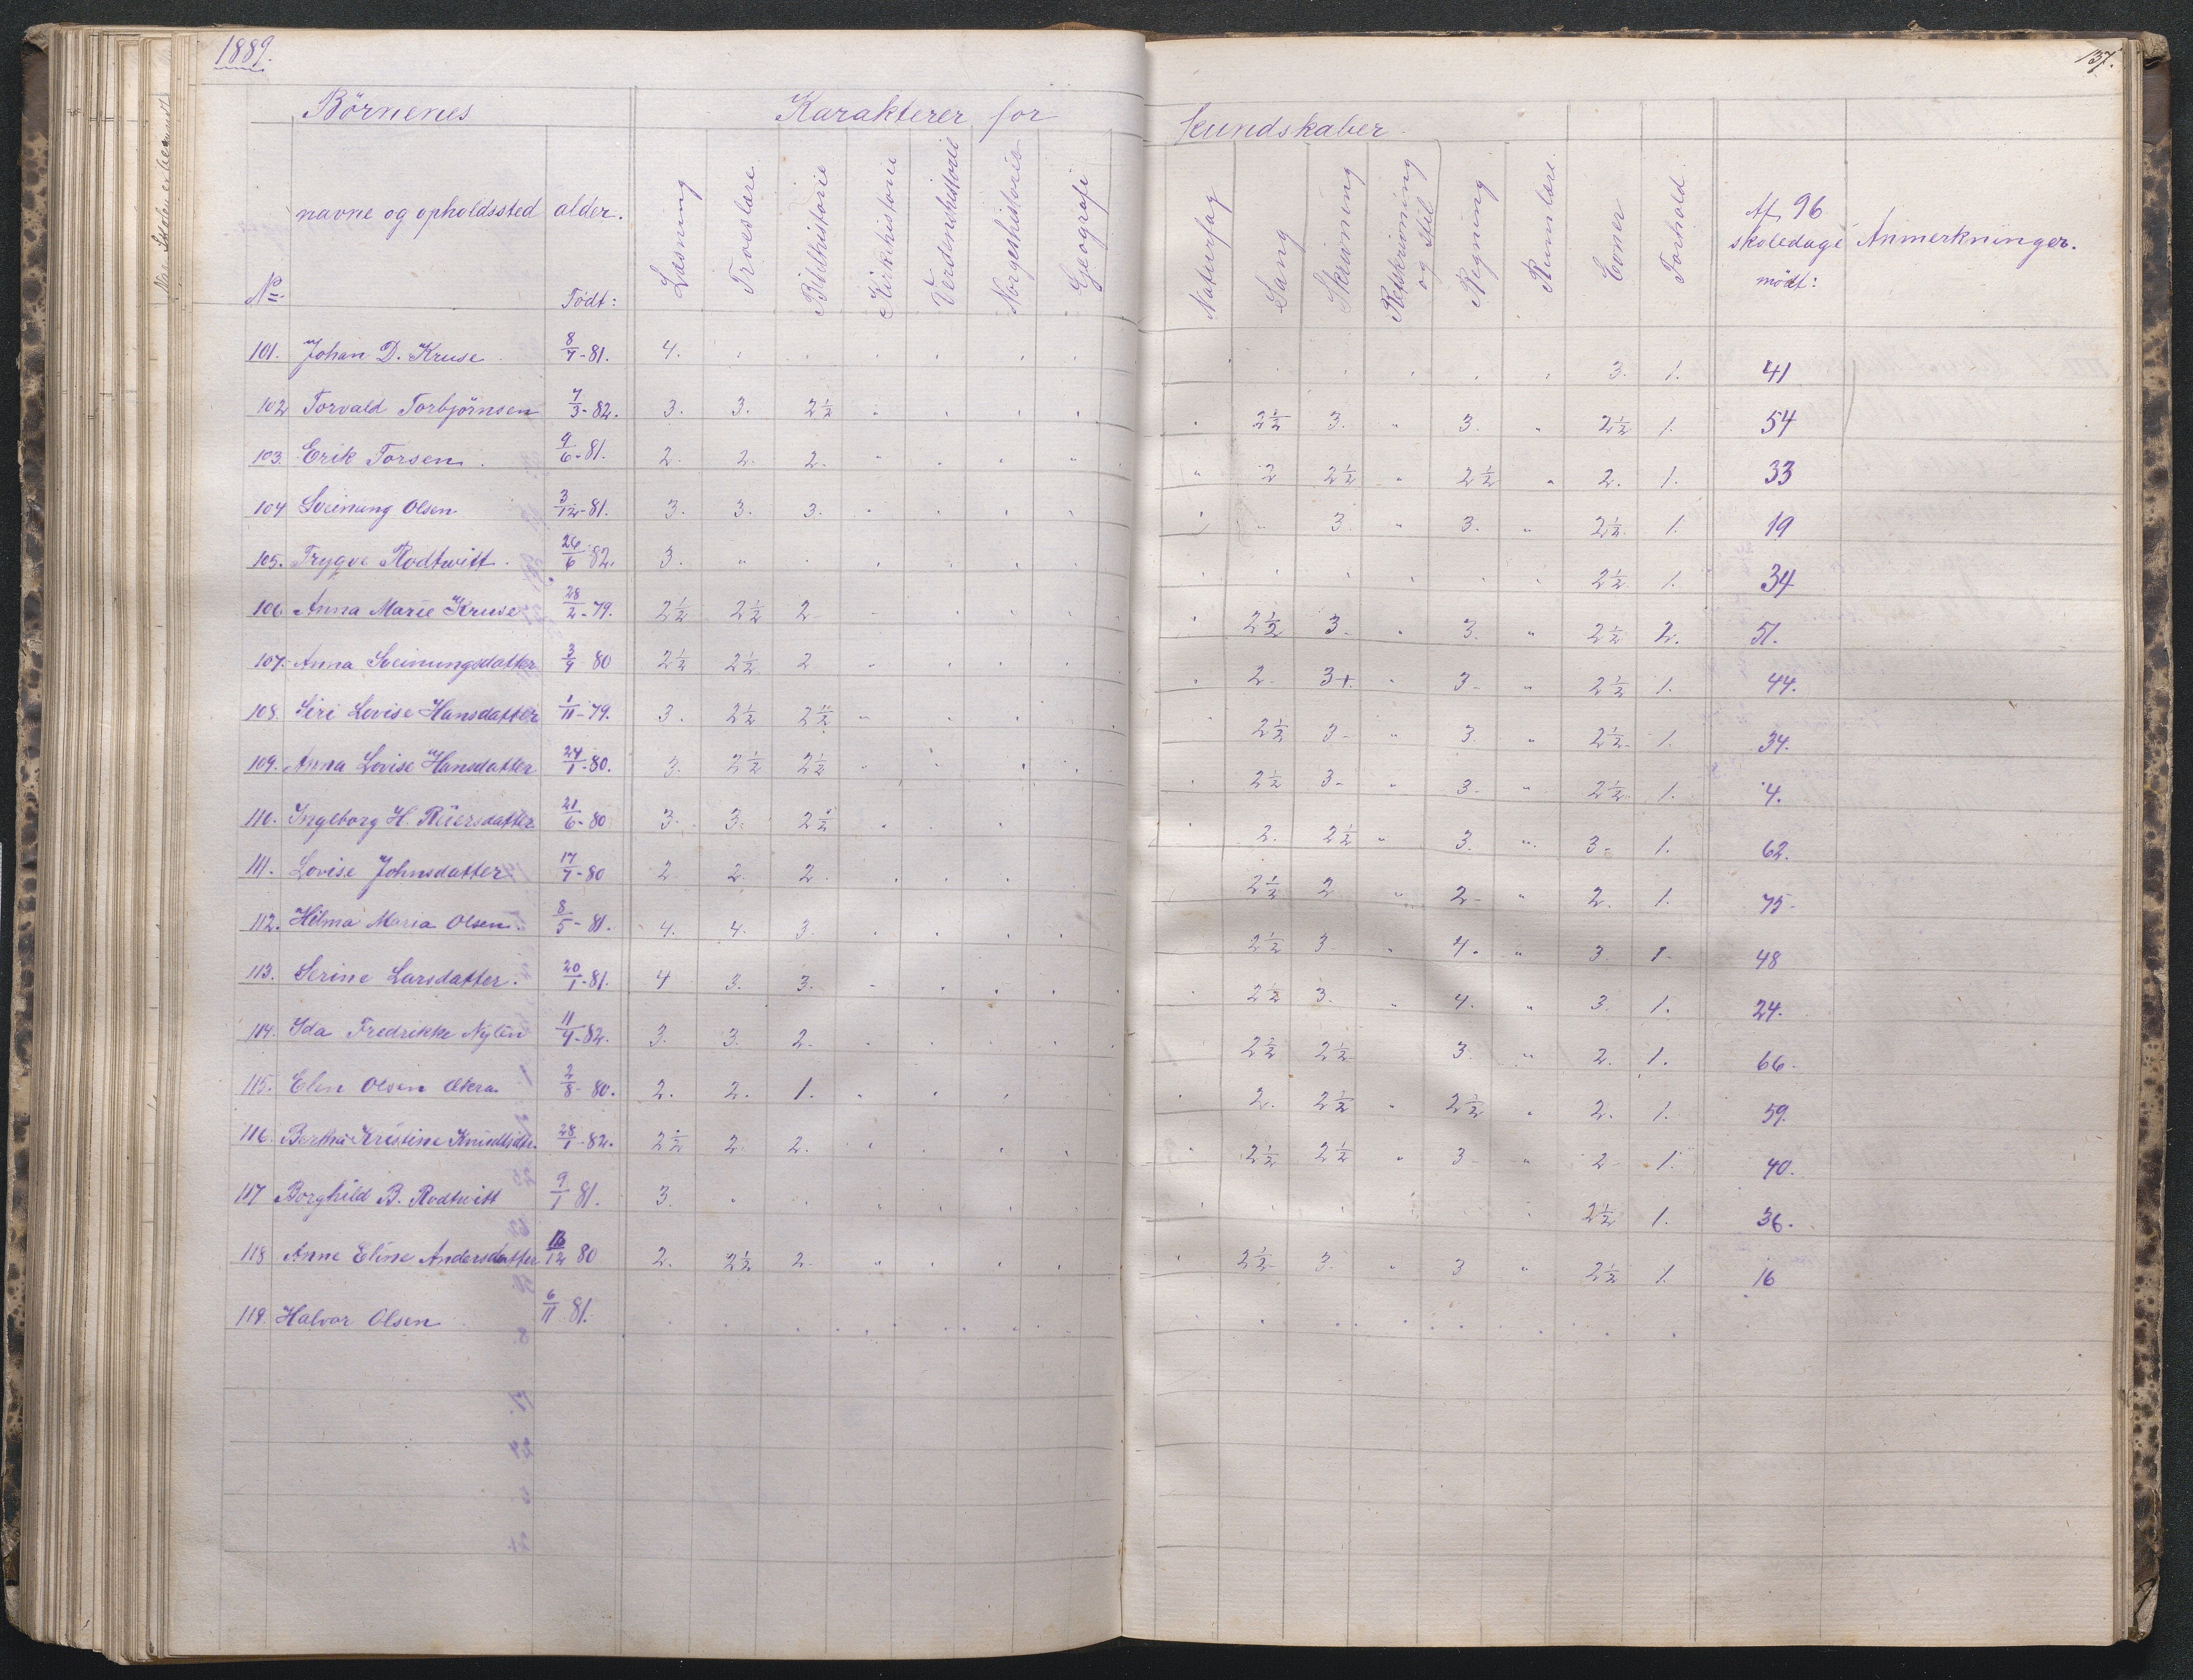 1889.
137.
Börnenes
Karakterer for
kundskaber.
No
navne og opholdssted
alder.
Födt:
Læsning
Troeslære
Bibelhistorie
Kirkehistorie
Verdenshistorie
Norgeshistorie
Geografi
Naturfag
Sang
Skrivning
Retskrivning og Stil
Regning
Rumlære
Evner
Forhold
Af 96 skoledage mödt:
Anmerkninger.
101. Johan D. Kruse 8/7-81. 4. 3. 1. 41
102 Torvald Torbjörnsen 7/3-82. 3. 3. 2½ 2½ 3. " 3. " 2½ 1. 54
103. Erik Torsen. 9/6-81. 2. 2. 2. " 2 2½ " 2½ " 2. 1. 33
104 Sveinung Olsen 3/12-81. 3. 3. 3. " 3. " 3. " 2½ 1. 19
105. Trygve Rodtwitt. 26/6 82. 3. " 2½ 1. 34
106. Anna Marie Kruse 28/2-79. 2½ 2½ 2 2½ 3. " 3. " 2½ 2. 51.
107. Anna Sveinungsdatter 3/9 80 2½ 2½ 2 2. 3+. " 3- " 2½ 1. 44.
108. Siri Lovise Hansdatter 1/11-79. 3. 2½ 2½ 2½ 3- " 3. " 2½ 1. 34.
109. Anna Lovise Hansdatter 24/1-80. 3. 2½ 2½ 2½ 3- " 3- " 2½ 1. 4.
110. Ingeborg H. Reiersdatter 21/6-80 3. 3. 2½ 2. 2½ " 3. " 3- 1. 62.
111. Lovise Johnsdatter. 17/7-80 2 2. 2. 2½ 2 " 2- " 2. 1. 75-
112. Hilma Maria Olsen. 8/5-81. 4. 4. 3. 2½ 3 " 4. " 3 1- 48
113. Serine Larsdatter. 20/1-81. 4 3. 3. 2½ 3. " 4. " 3. 1. 24.
114. Ida Fredrikke Nylén 11/4-82. 3. 3. 2. 2½ 2½ 3. " 2. 1. 66.
115. Elen Olsen Akra 2/8-80. 2. 2. 1. 2. 2½ " 2½ " 2. 1. 59.
116. Bertha Kristine Knudtsdtr. 28/1-82. 2½ 2. 2. 2½ 2½ " 3- " 2 1. 40.
117 Borghild B. Rodtwitt 9/1 81. 3. 2½ 1. 36.
118 Anne Eline Andersdatter 16/12 80 2. 2½ 2. 2½ 3. " 3 " 2½ 1. 16
119. Halvor Olsen 6/11 81.